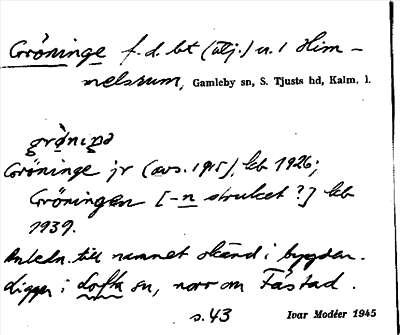 Gröninge f.d. bt (älj.) u. / Him-
melsrum, Gamleby sn, S. Tjusts hd, Kalm. l.
grö̀niŋə
Gröninge jr (avs. 1915), kb 1926;
Gröningen [-n struket ?] kb
1939.
Anledn. till namnet okänd i bygden.
Ligger i Lofta sn, norr om Fåstad.
s. 43 Ivar Modéer 1945